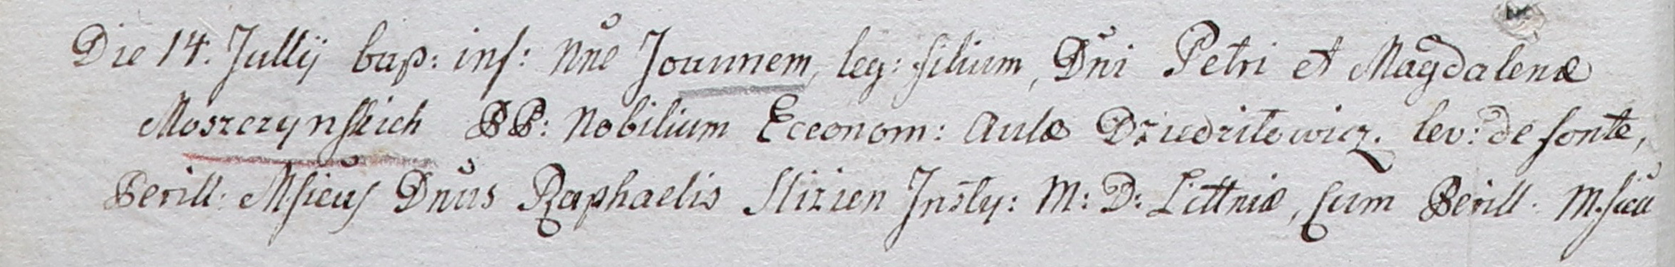 Die 14. Jullij bap: inf: nn̄e Joannem, leg: filium, Dn̄i Petri et Magdalenæ
Moszczynskich PP: Nobilium Eceonom: aulæ Dziedziłowicz. lev: de fonte,
Perill: Msicus Dn̄us Raphaelis Slizien Instig: M: D: Littniæ, Cum Perill: M.sica